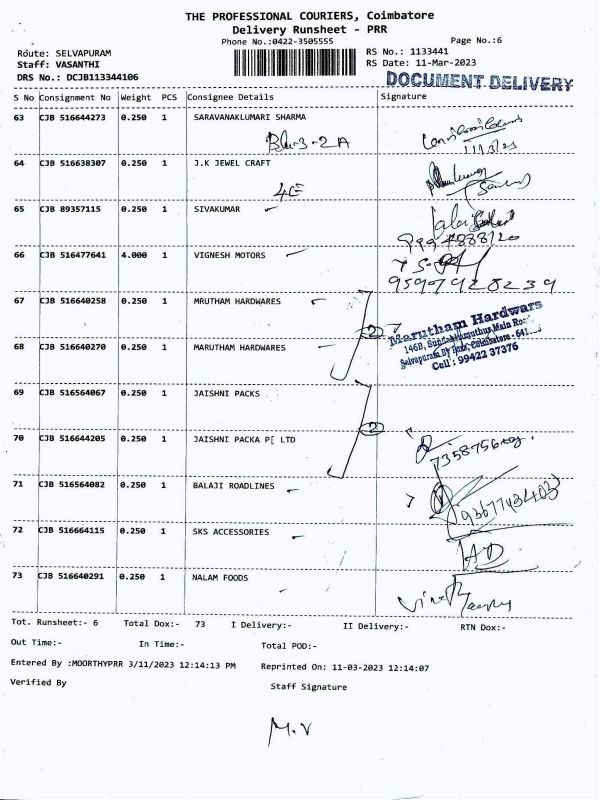 THE PROFESSIONAL COURIERS, Coimbatore
Delivery Runsheet - PRR
Phone No.:0422-3505555
Page No.:6
Route: SELVAPURAM
RS No.: 1133441
Staff: VASANTHI
RS Date: 11-Mar-2023
DRS No.: DCJB113344106
DOCUMENT DELIVERY
S No Consignment No Weight PCS Consignee Details Signature
63 CJB 516644273 0.250 1 SARAVANAKLUMARI SHARMA
64 CJB 516638307 0.250 1 J.K JEWEL CRAFT
4E
65 CJB 89357115 0.250 1 SIVAKUMAR
66 CJB 516477641 4.000 1 VIGNESH MOTORS
95979 28239
67 CJB 516640258 0.250 1 MRUTHAM HARDWARES
2
Marutham Hardwars
146B, Main
Selvapuram Coimbatore - 641
Cell : 99422 37376
68 CJB 516640270 0.250 1 MARUTHAM HARDWARES
69 CJB 516564067 0.250 1 JAISHNI PACKS
2
70 CJB 516644205 0.250 1 JAISHNI PACKA P[ LTD
71 CJB 516564082 0.250 1 BALAJI ROADLINES
72 CJB 516664115 0.250 1 SKS ACCESSORIES
73 CJB 516640291 0.250 1 NALAM FOODS
Tot. Runsheet:- 6 Total Dox:- 73 I Delivery:- II Delivery:- RTN Dox:-
Out Time:- In Time:- Total POD:-
Entered By :MOORTHYPRR 3/11/2023 12:14:13 PM Reprinted On: 11-03-2023 12:14:07
Verified By Staff Signature
M.V